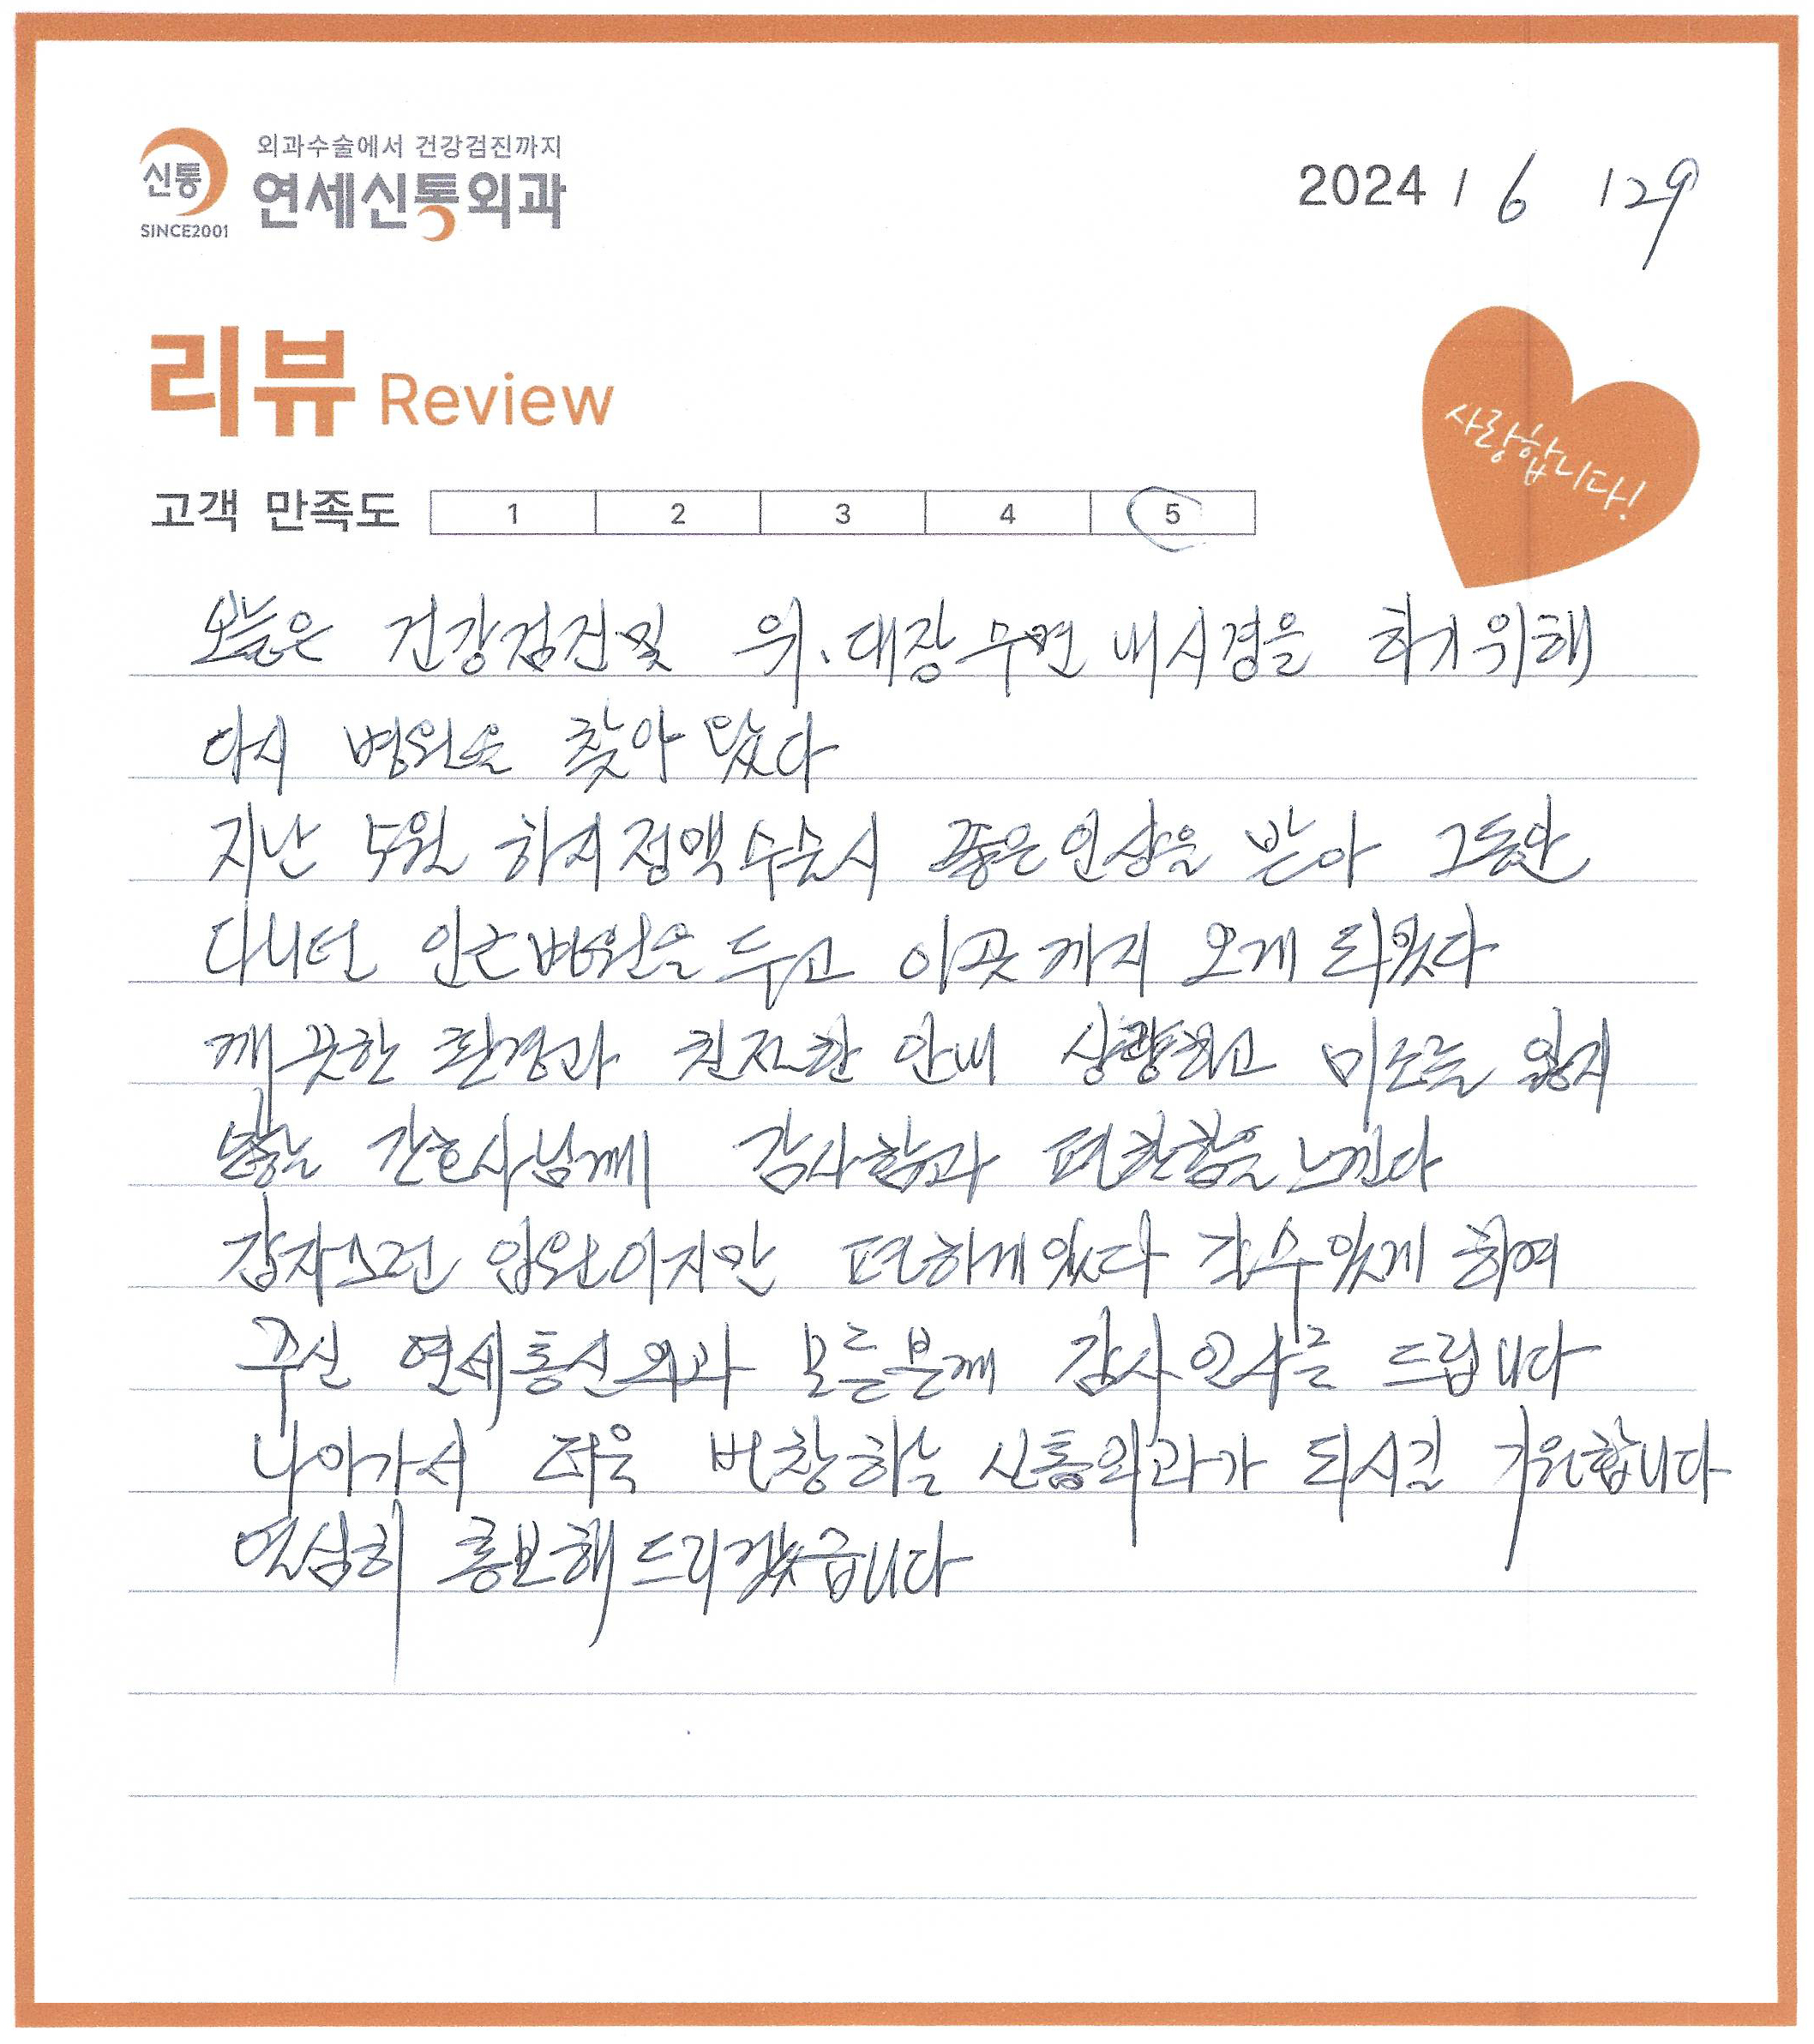 외과수술에서 건강검진까지
신통 연세신통외과
SINCE2001
2024 / 6 / 29
리뷰 Review
사랑합니다!
고객 만족도 1 2 3 4 5
오늘은 건강검진및 위.대장수면 내시경을 하기위해
다시 병원을 찾아 왔다
지난 5월 하지정맥수술시 좋은인상을 받아 그동안
다니던 인근병원을 두고 이곳까지 오게 되었다
깨끗한 환경과 친절한 안내 상량하고 미소를 잃지
않는 간호사님께 감사함과 편안함을 느낀다
갑자스런 입원이지만 편하게있다 갈수있게 하여
주신 연세통신외과 모든분께 감사인사를 드립니다
나아가서 더욱 번창하는 신통외과가 되시길 기원합니다
열심히 홍보해드리겠습니다